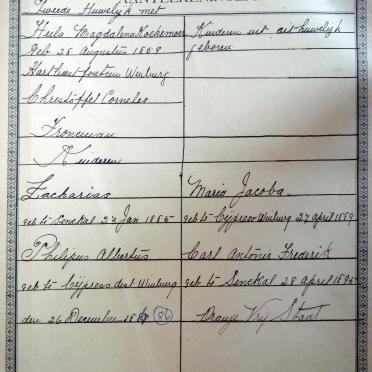 AANTEEKENINGEN
Tweede Huwelijk met
Heila Magdalena Kockemoer
Kinderen uit dit huwelijk
geb 28 Augustus 1859
geboren
Fontein Winburg
Christoffel Cornelis
Froneman
Kinderen
Zacharias
Maria Jacoba
geb te Senekal 27 Jan 1885
geb te Cypress Winburg 27 april 1889
Philipus Albertus
Carl Antonie Fredrik
geb te Cypress dist Winburg
geb te Senekal 28 april 1895
den 26 December 188 (86)
Oranje Vrij Staat